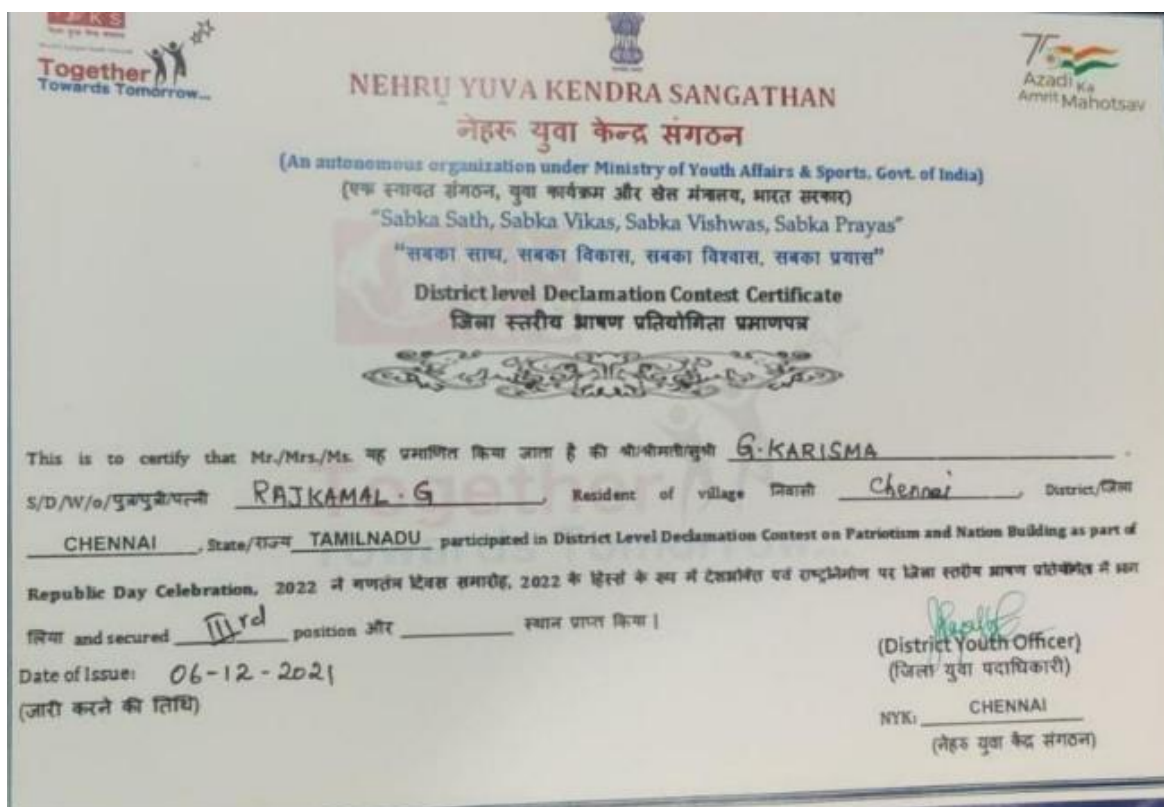 Together
Towards Tomorrow...
75
Azadi Ka
Amrit Mahotsav
NEHRU YUVA KENDRA SANGATHAN
नेहरू युवा केन्द्र संगठन
(An autonomous organization under Ministry of Youth Affairs & Sports. Govt. of India)
(एक स्वायत संगठन, युवा कार्यक्रम और खेल मंत्रालय, भारत सरकार)
"Sabka Sath, Sabka Vikas, Sabka Vishwas, Sabka Prayas"
"सबका साथ, सबका विकास, सबका विश्वास, सबका प्रयास"
District level Declamation Contest Certificate
जिला स्तरीय भाषण प्रतियोगिता प्रमाणपत्र
This is to certify that Mr./Mrs./Ms. यह प्रमाणित किया जाता है की श्री/श्रीमती/सुश्री G.KARISMA
S/D/W/o/पुत्र/पुत्री/पत्नी RAJKAMAL.G, Resident of village निवासी Chennai, District/जिला
CHENNAI, State/राज्य TAMILNADU participated in District Level Declamation Contest on Patriotism and Nation Building as part of
Republic Day Celebration, 2022 ने गणतंत्र दिवस समारोह, 2022 के हिस्से के रूप में देशभक्ति एवं राष्ट्रनिर्माण पर जिला स्तरीय भाषण प्रतियोगिता में भाग
लिया and secured IIIrd position और स्थान प्राप्त किया |
Date of Issue: 06-12-2021
(जारी करने की तिथि)
(District Youth Officer)
(जिला युवा पदाधिकारी)
NYK: CHENNAI
(नेहरु युवा केंद्र संगठन)